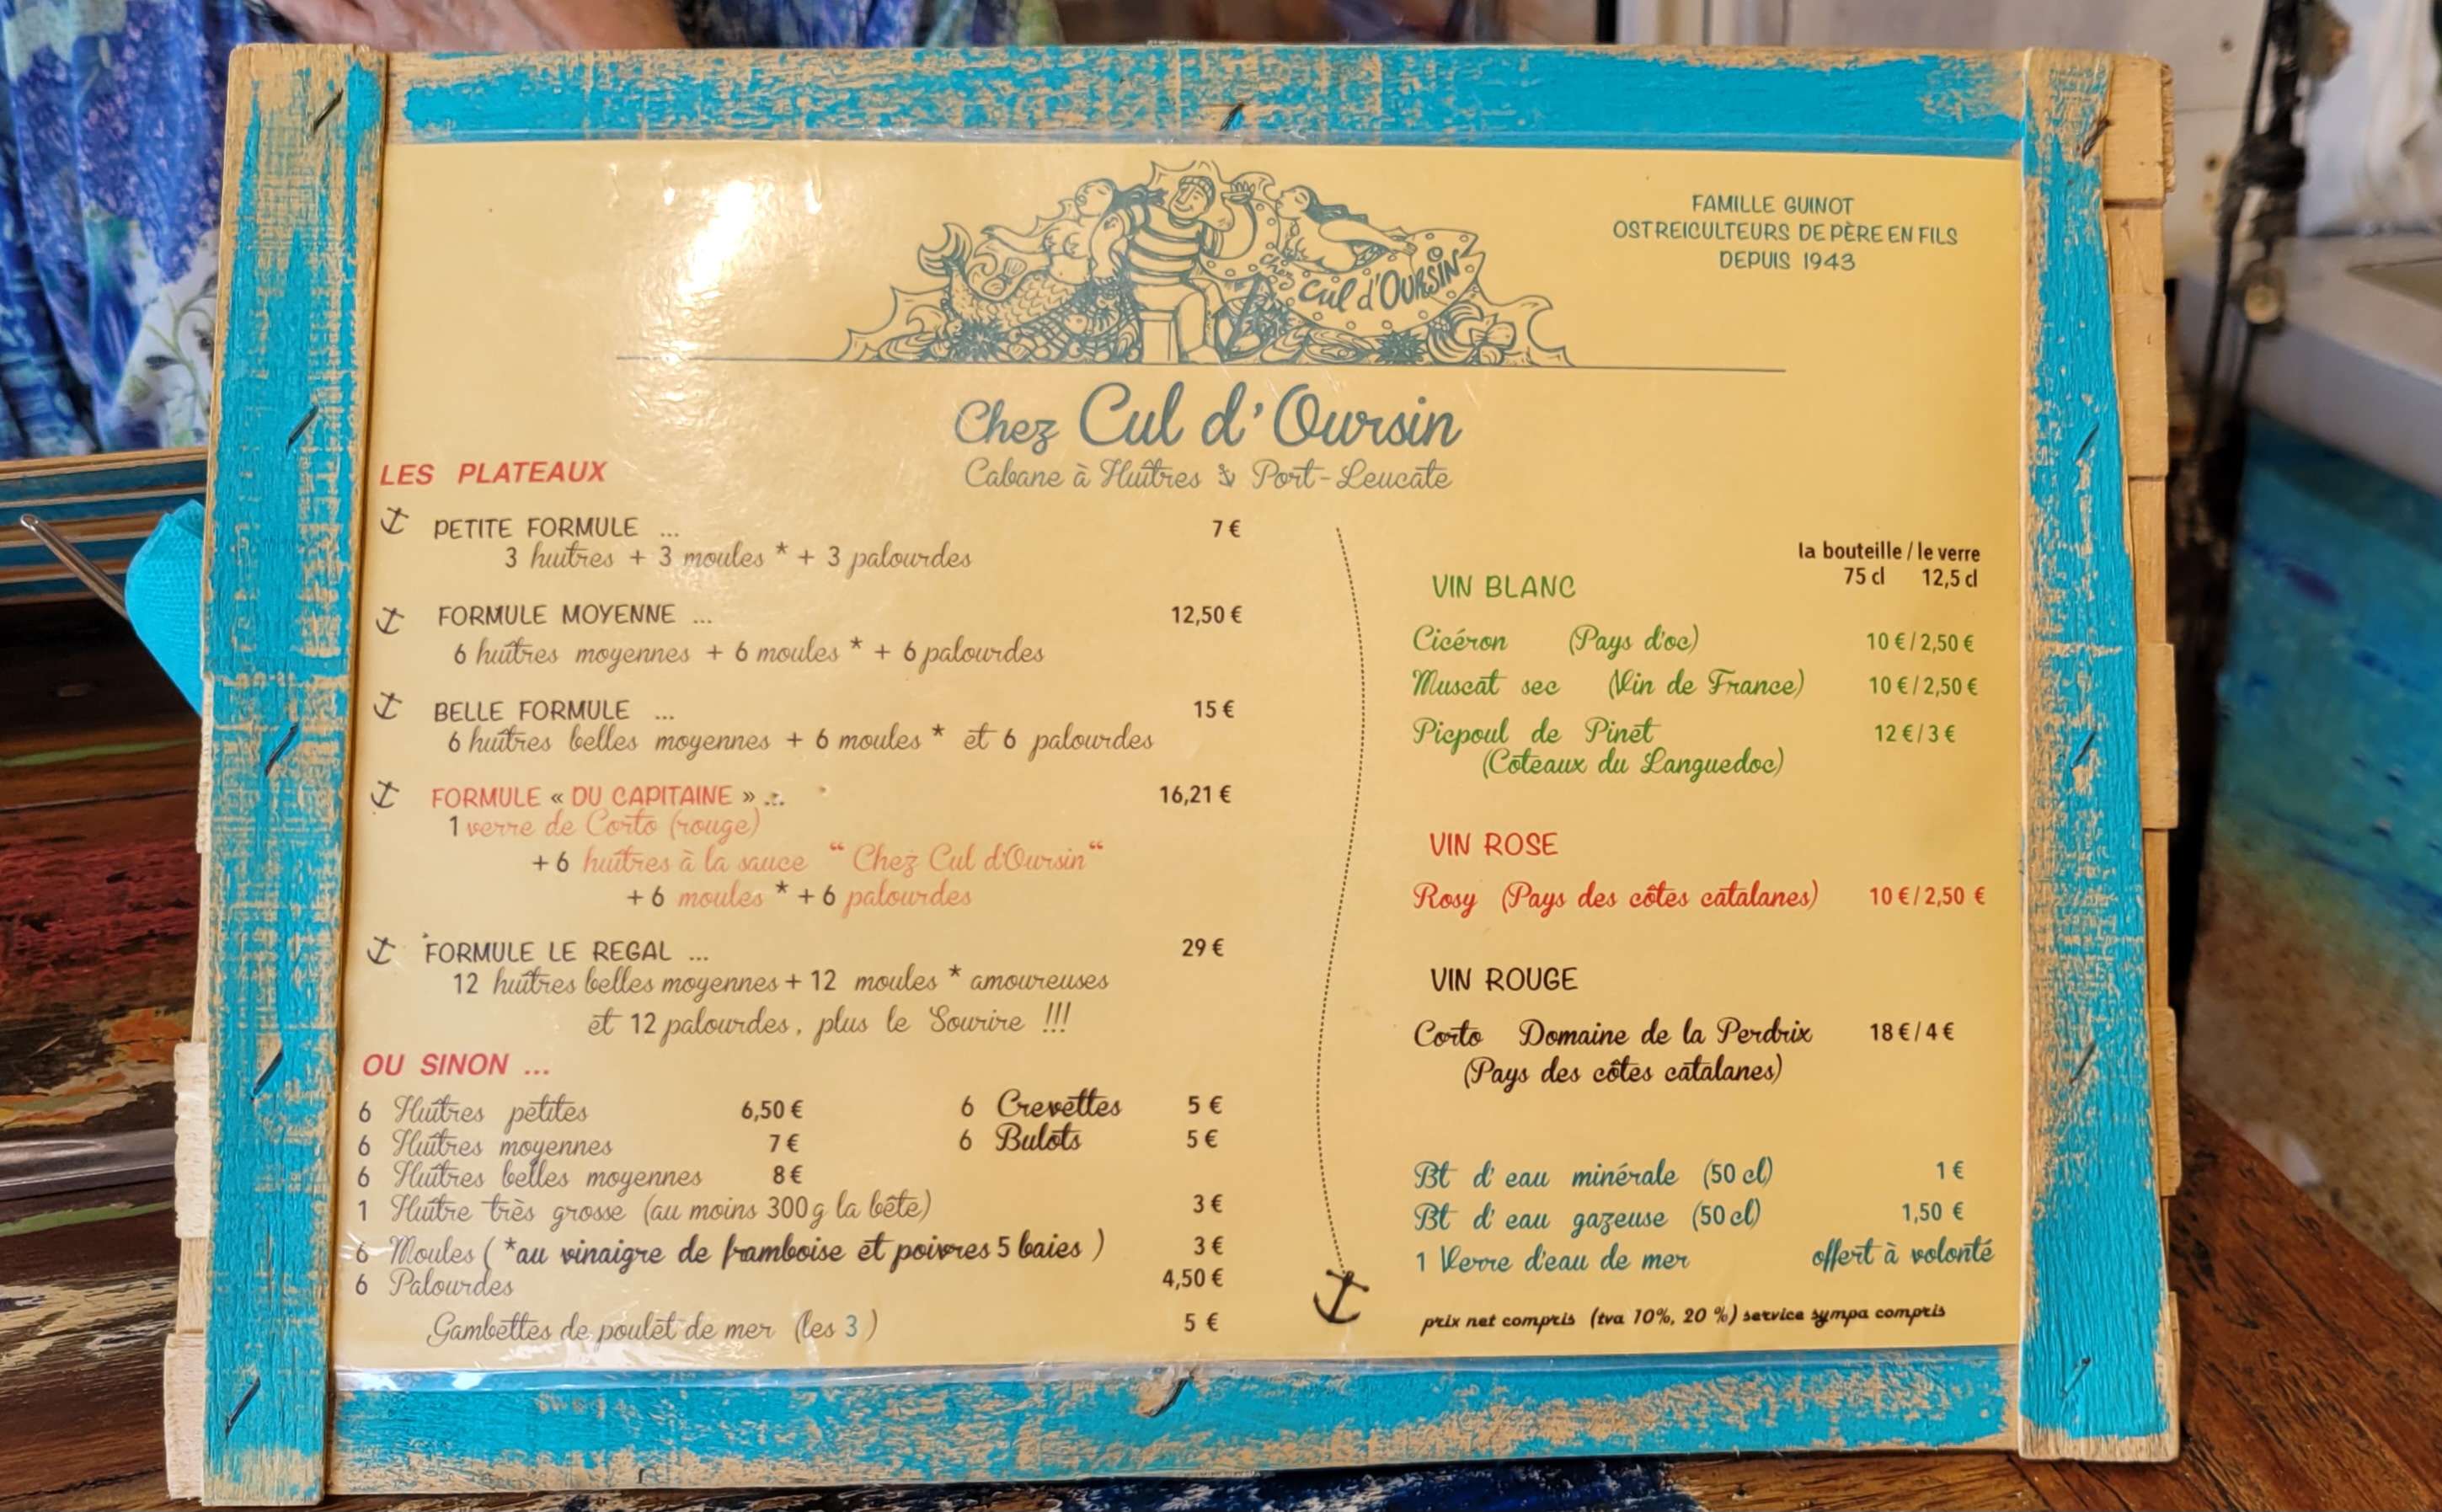 FAMILLE GUINOT
OSTREICULTEURS DE PÈRE EN FILS
DEPUIS 1943
Chez
Cul d'OURSIN
Chez Cul d'Oursin
Cabane à Huîtres Port-Leucate
LES PLATEAUX
PETITE FORMULE ... 7 €
3 huîtres + 3 moules * + 3 palourdes
FORMULE MOYENNE ... 12,50 €
6 huîtres moyennes + 6 moules * + 6 palourdes
BELLE FORMULE ... 15 €
6 huîtres belles moyennes + 6 moules * et 6 palourdes
FORMULE « DU CAPITAINE » ... 16,21 €
1 verre de Corto (rouge)
+ 6 huîtres à la sauce “ Chez Cul d'Oursin“
+ 6 moules * + 6 palourdes
FORMULE LE REGAL ... 29 €
12 huîtres belles moyennes + 12 moules * amoureuses
et 12 palourdes, plus le Sourire !!!
OU SINON ...
6 Huîtres petites 6,50 €
6 Huîtres moyennes 7 €
6 Huîtres belles moyennes 8 €
6 Crevettes 5 €
6 Bulots 5 €
1 Huître très grosse (au moins 300 g la bête) 3 €
6 Moules ( *au vinaigre de framboise et poivres 5 baies ) 3 €
6 Palourdes 4,50 €
Gambettes de poulet de mer (les 3 ) 5 €
la bouteille / le verre
75 cl 12,5 cl
VIN BLANC
Cicéron (Pays d'oc) 10 € / 2,50 €
Muscat sec (Vin de France) 10 € / 2,50 €
Picpoul de Pinet 12 € / 3 €
(Coteaux du Languedoc)
VIN ROSE
Rosy (Pays des côtes catalanes) 10 € / 2,50 €
VIN ROUGE
Corto Domaine de la Perdrix 18 € / 4 €
(Pays des côtes catalanes)
Bt d' eau minérale (50 cl) 1 €
Bt d' eau gazeuse (50 cl) 1,50 €
1 Verre d'eau de mer offert à volonté
prix net compris (tva 10%, 20 %) service sympa compris